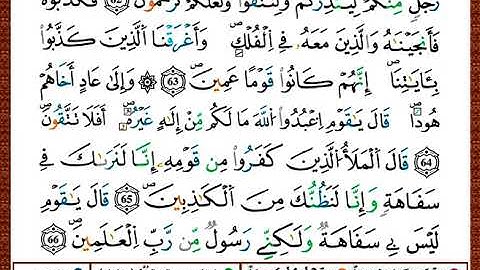 رَجُلٍ مِّنكُمْ لِيُنذِرَكُمْ وَلِتَتَّقُوا۟ وَلَعَلَّكُمْ تُرْحَمُونَ 62 فَكَذَّبُوهُ
فَأَنجَيْنَٰهُ وَٱلَّذِينَ مَعَهُۥ فِى ٱلْفُلْكِ وَأَغْرَقْنَا ٱلَّذِينَ كَذَّبُوا۟
بِـَٔايَٰتِنَآ إِنَّهُمْ كَانُوا۟ قَوْمًا عَمِينَ 63 ۞ وَإِلَىٰ عَادٍ أَخَاهُمْ
هُودًا قَالَ يَٰقَوْمِ ٱعْبُدُوا۟ ٱللَّهَ مَا لَكُم مِّنْ إِلَٰهٍ غَيْرُهُۥٓ أَفَلَا تَتَّقُونَ
64 قَالَ ٱلْمَلَأُ ٱلَّذِينَ كَفَرُوا۟ مِن قَوْمِهِۦٓ إِنَّا لَنَرَىٰكَ فِى
سَفَاهَةٍ وَإِنَّا لَنَظُنُّكَ مِنَ ٱلْكَٰذِبِينَ 65 قَالَ يَٰقَوْمِ
لَيْسَ بِى سَفَاهَةٌ وَلَٰكِنِّى رَسُولٌ مِّن رَّبِّ ٱلْعَٰلَمِينَ 66